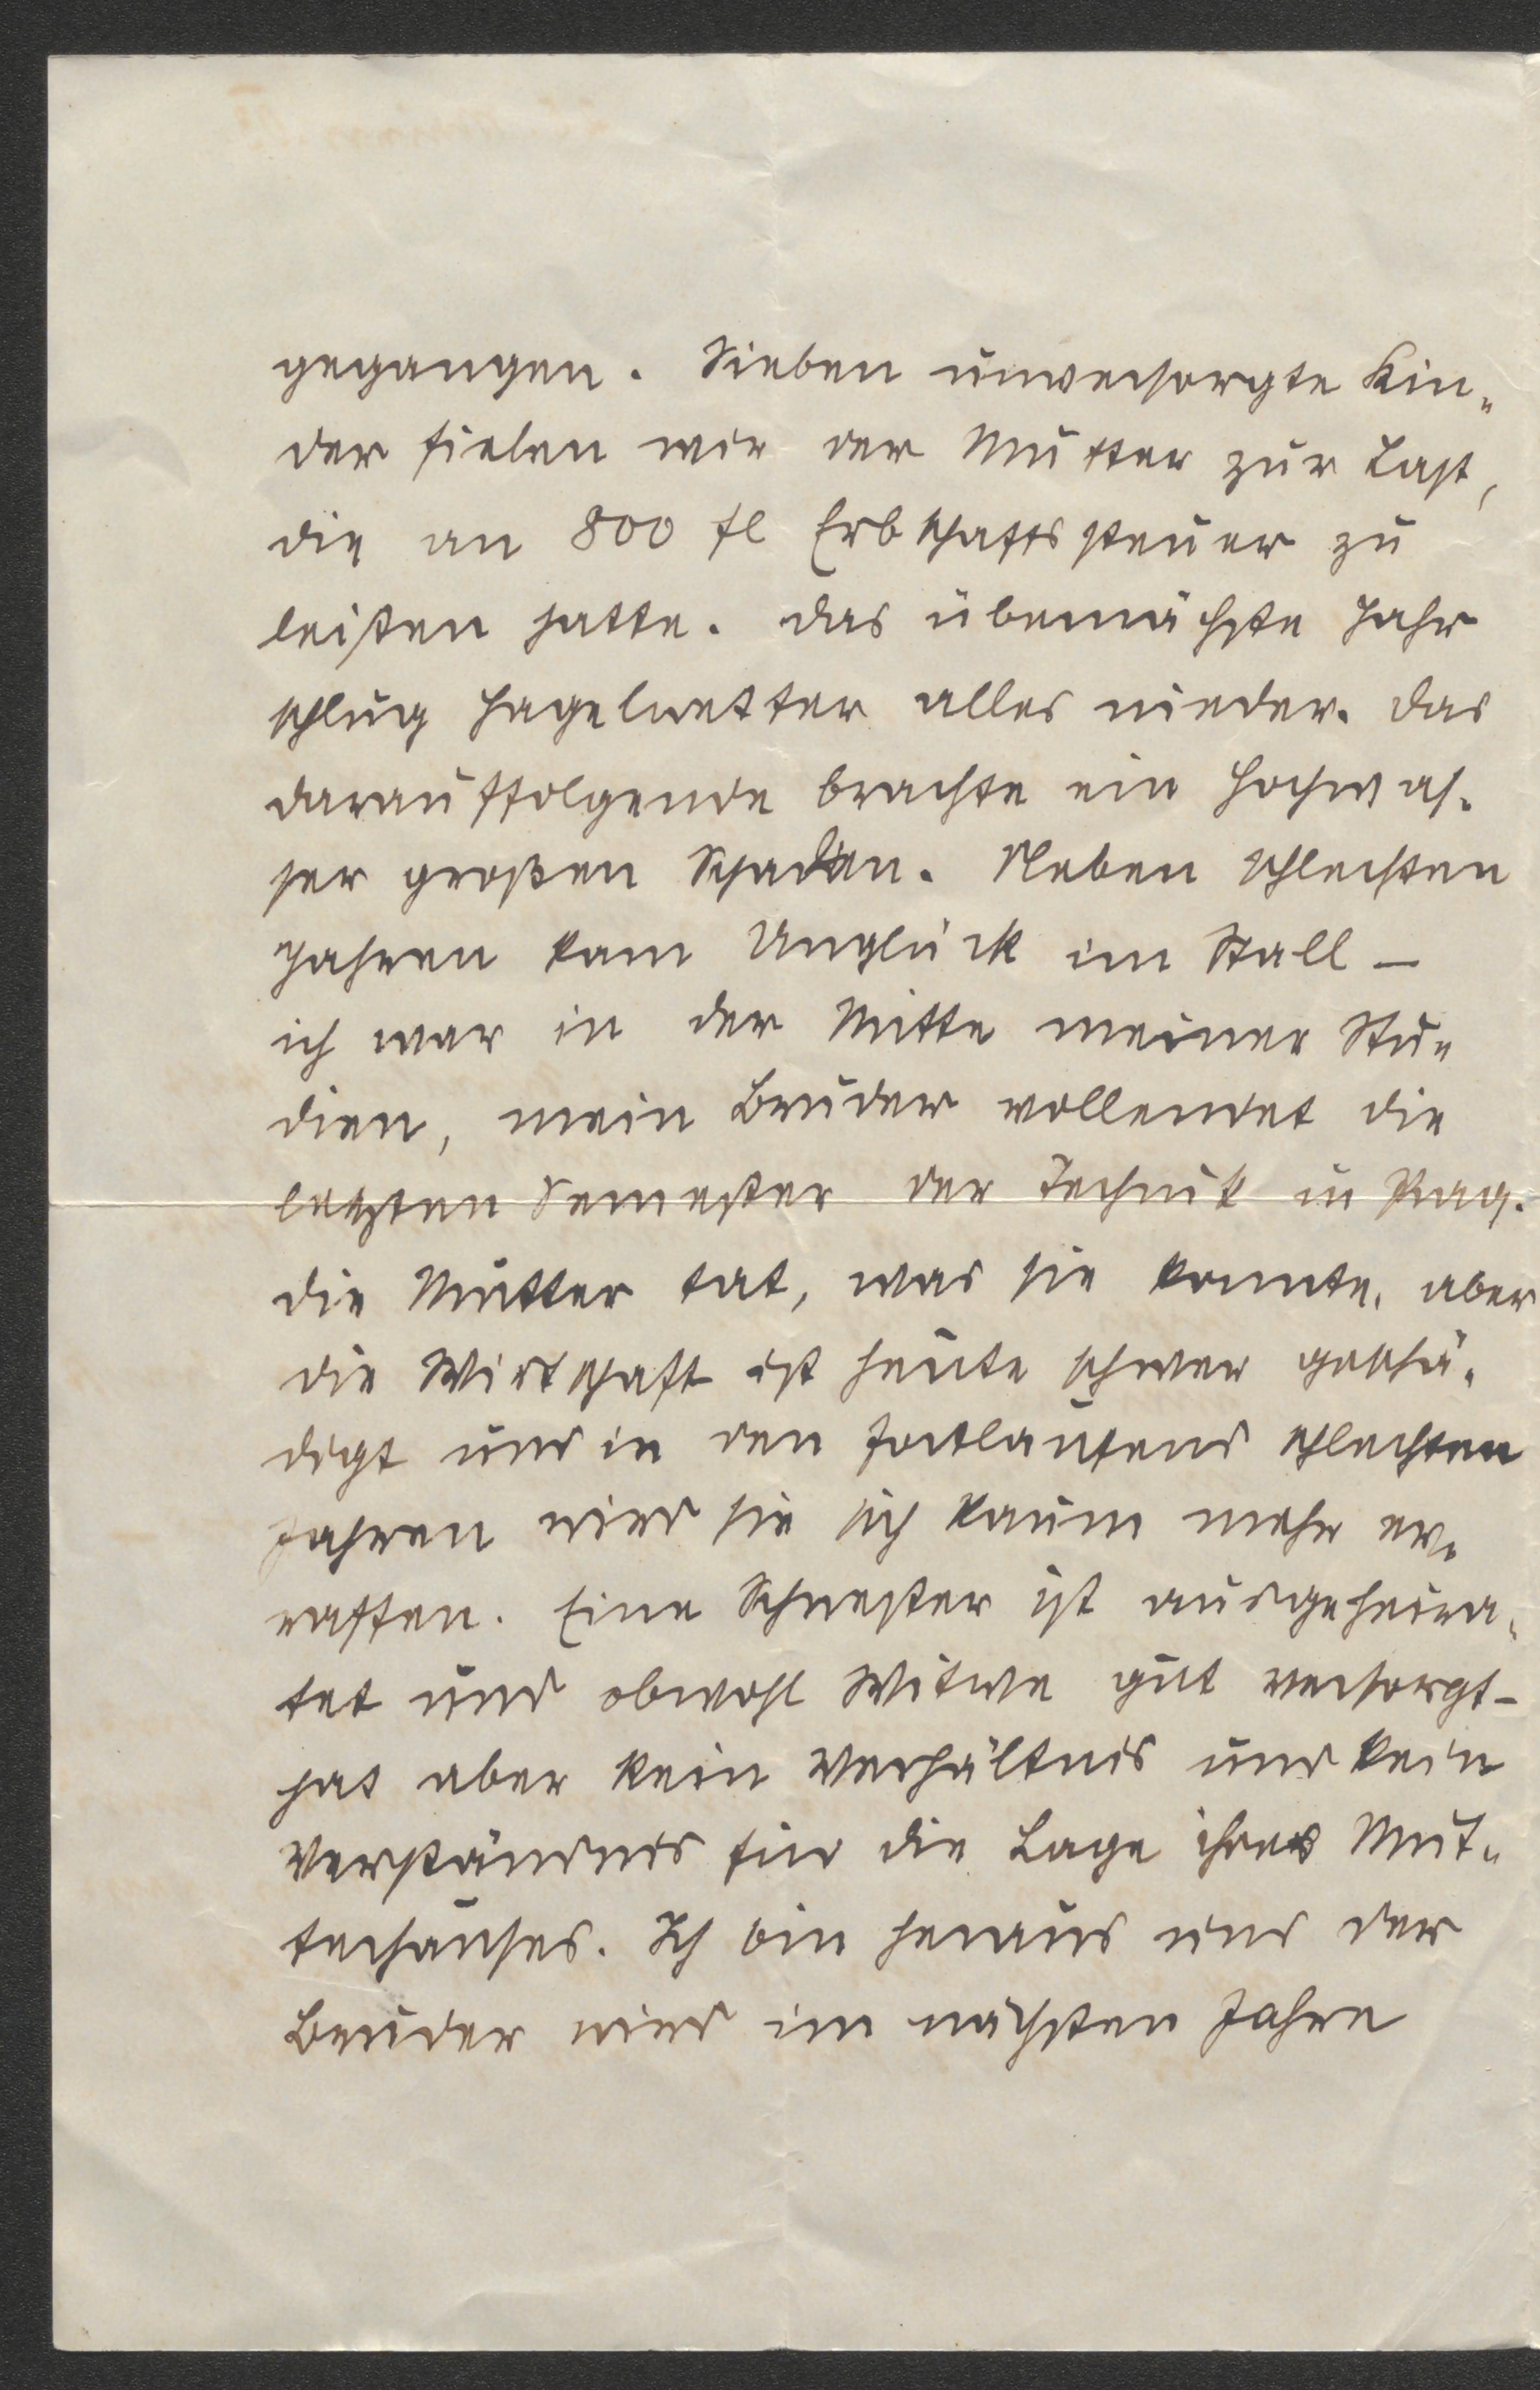 gegangen. Sieben unversorgte Kin-
der fielen wir der Mutter zur Last,
die an 800 fl Erbschaftssteuer zu
leisten hatte. Das übernächste Jahr
schlug Hagelwetter alles nieder. Das
darauffolgende brachte ein Hochwas-
ser großen Schaden. Neben schlechten
Jahren kam Unglück im Stall –
ich war in der Mitte meiner Stu-
dien, mein Bruder vollendet die
letzten Semester der Technik in Prag.
Die Mutter tat, was sie konnte, aber
die Wirtschaft ist heute schwer geschä-
digt und in den fortlaufend schlechten
Jahren wird sie sich kaum mehr er-
raffen. Eine Schwester ist ausgeheira-
tet und obwohl Witwe gut versorgt –
hat aber kein Verhältnis und kein
Verständnis für die Lage ihres Mut-
terhauses. Ich bin heraus und der
Bruder wird im nächsten Jahre